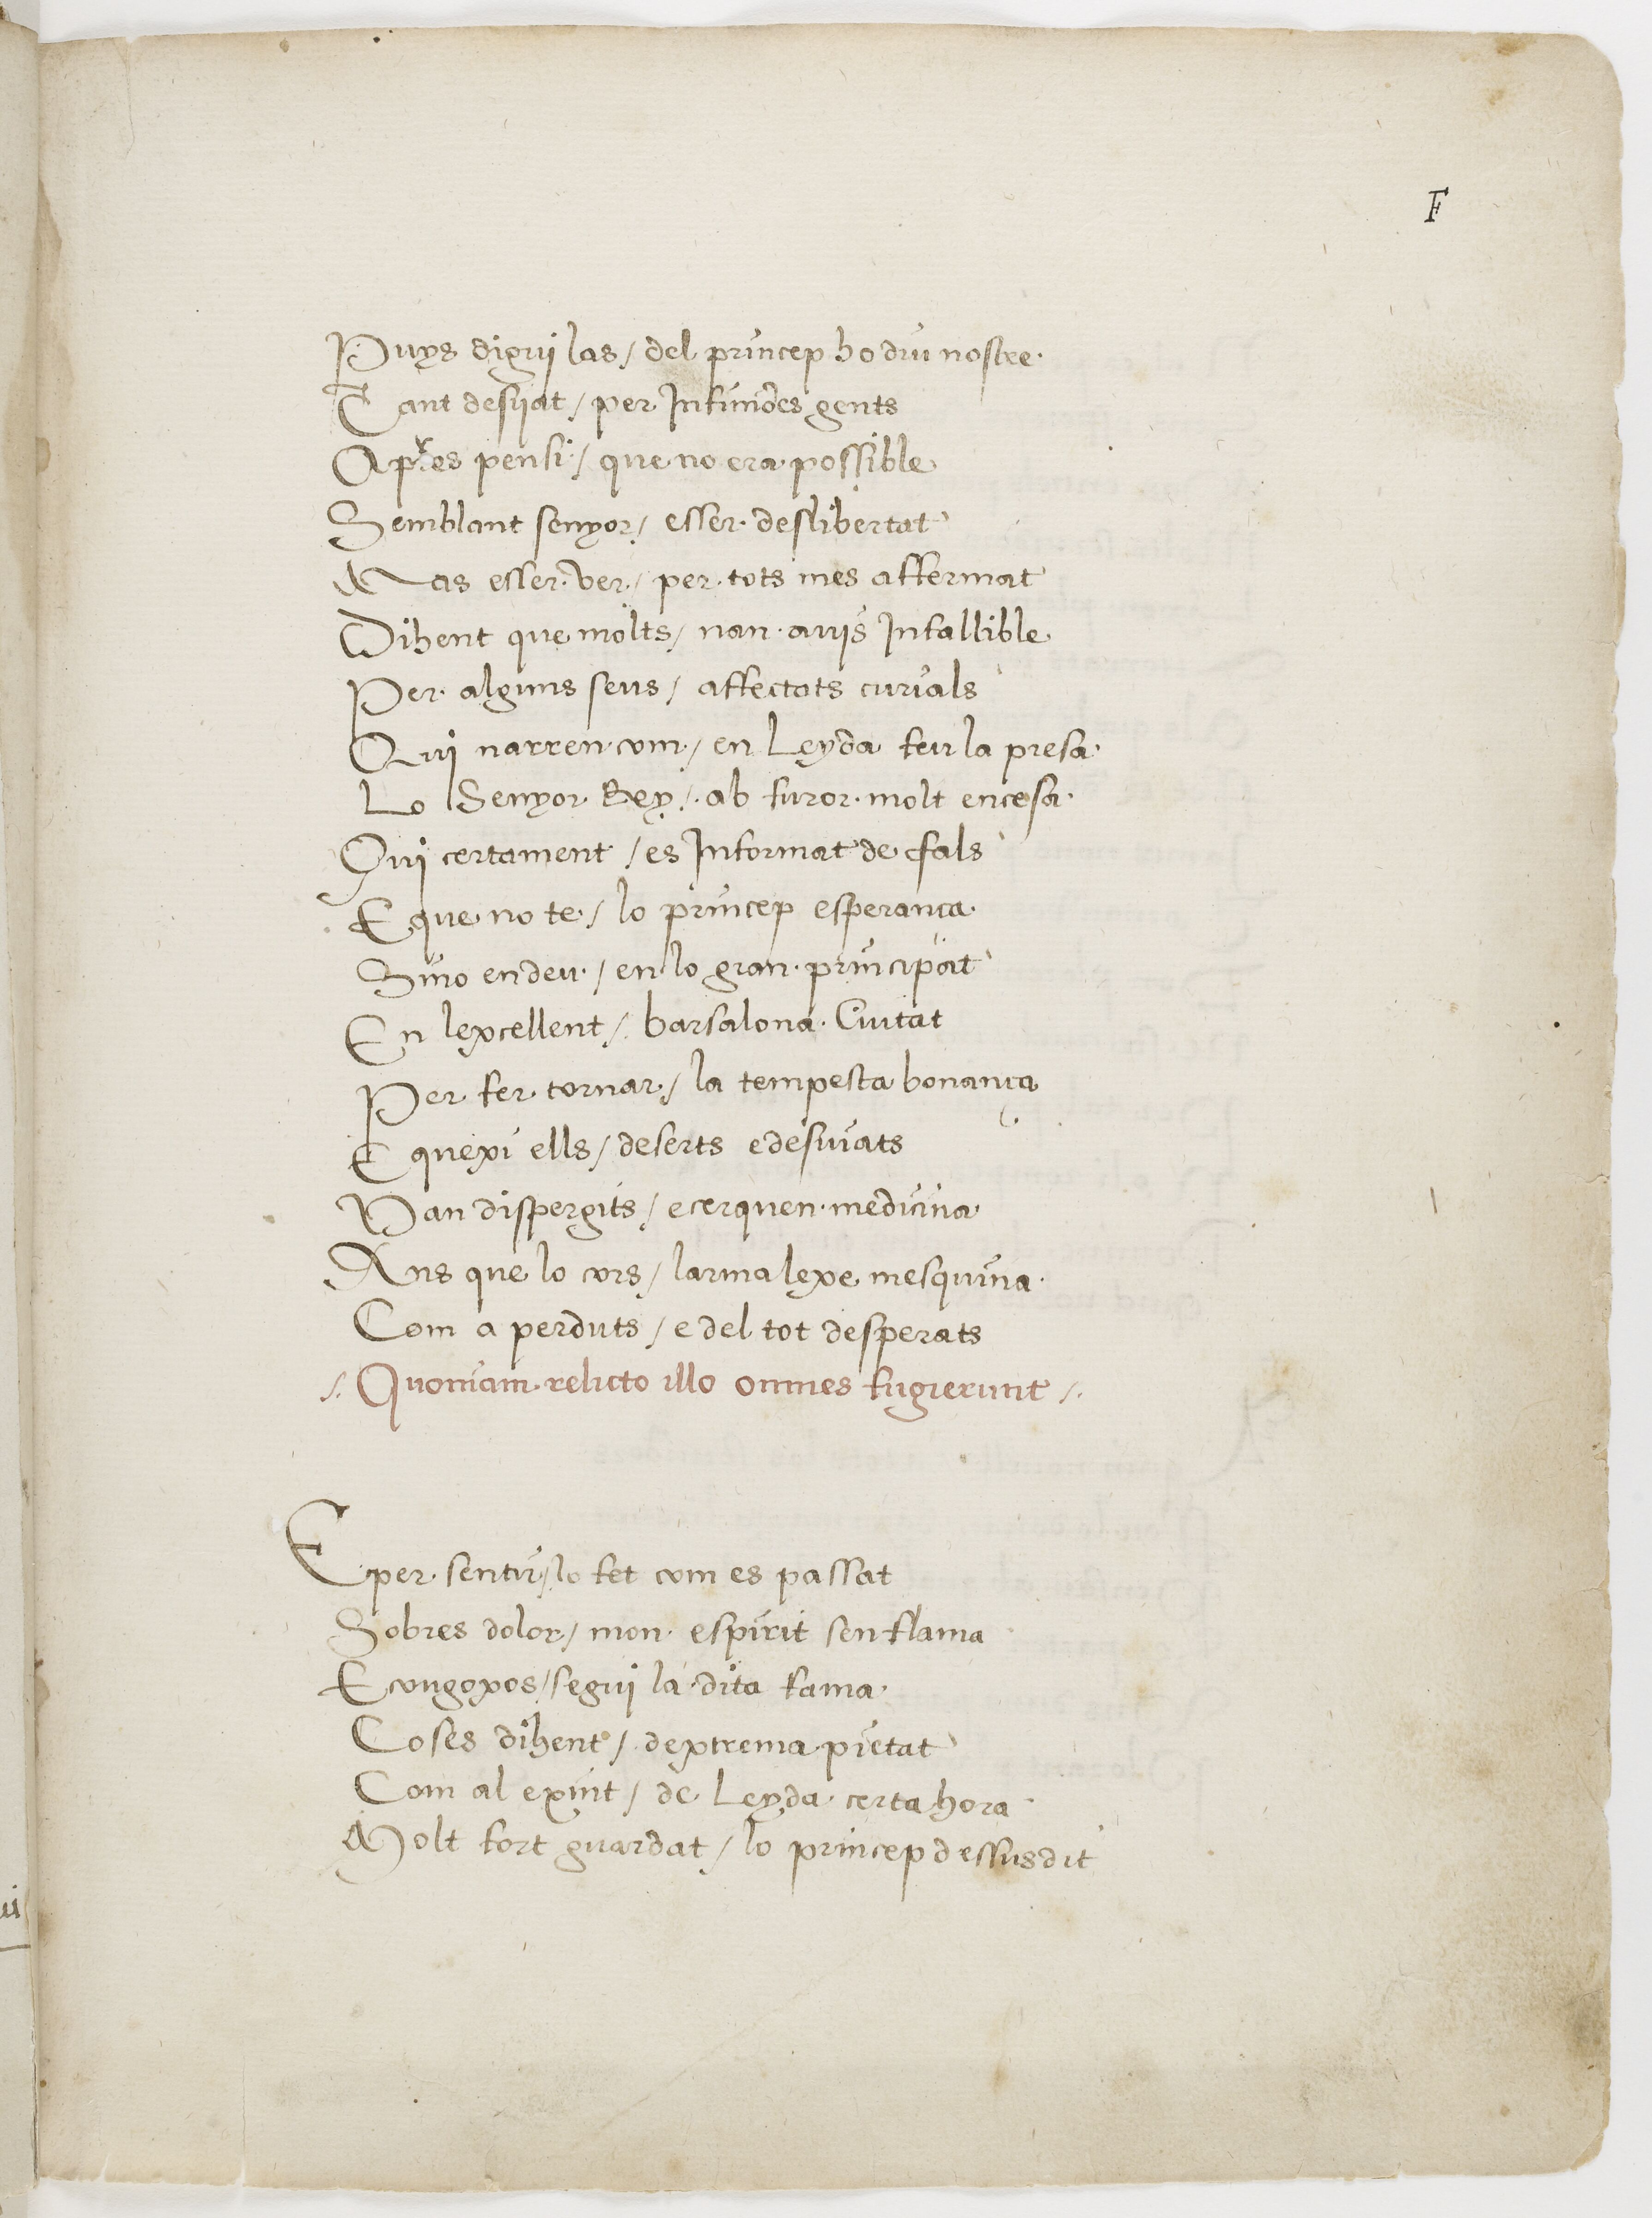 F
Puys digui las / del princep ho diu nostre
Tant desijat / per Infinides gents
Apres pensi / que no era possible
Semblant senyor / esser deslibertat
Mas esser ver / per tots mes affermat
Dihent que molts / nan auis Infallible
Per alguns seus / affectats curials
Qui narren com / en Leyda feu la presa
Lo Senyor Rey / ab furor molt encesa
Qui certament / es Informat de fals
E que no te / lo princep esperança
Sino en deu / en lo gran principat
En lexcellent / barsalona Ciutat
Per fer tornar / la tempesta bonança
E quexi ells / deserts e desuiats
Van dispergits / e cerquen medicina
Ans que lo cors / larma lexe mesquina
Com a perduts / e del tot desperats
/. Quoniam relicto illo omnes fugierunt /.
E per sentir / lo fet com es passat
Sobres dolor / mon espirit senflama
E congoxos / segui la dita fama
Coses dihent / dextrema pietat
Com al exint / de Leyda certa hora
Molt fort guardat / lo princep dessusdit